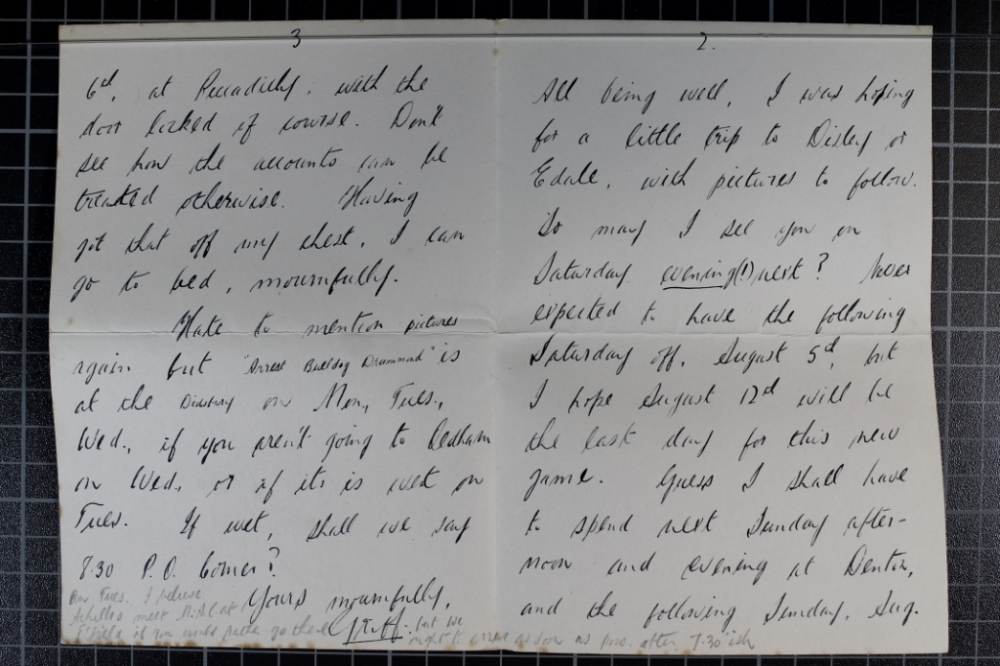 2.
All being well, I was hoping
for a little trip to Disley or
Edale, with pictures to follow.
So may I see you on
Saturday evening(!) next? Never
expected to have the following
Saturday off, August 5th, but
I hope August 12th will be
the last day for this new
game. Guess I shall have
to spend next Sunday after-
noon and evening at Denton,
and the following Sunday, Aug.
3
6th, at Piccadilly, with the
door locked of course. Don't
see how the accounts can be
treated otherwise. Having
got that off my chest, I can
go to bed, mournfully.
Hate to mention pictures
again but "Arrest Bulldog Drummond" is
at the on Mon, Tues.,
Wed., if you aren't going to
on Wed., or if it is wet on
Tues. If wet, shall we say
8.30 P.O. Corner?
Yours mournfully,
Geoff.
On Tues. I believe
meet at
if you would rather go there, but we
ought to arrive as soon as poss. after 7.30 ish